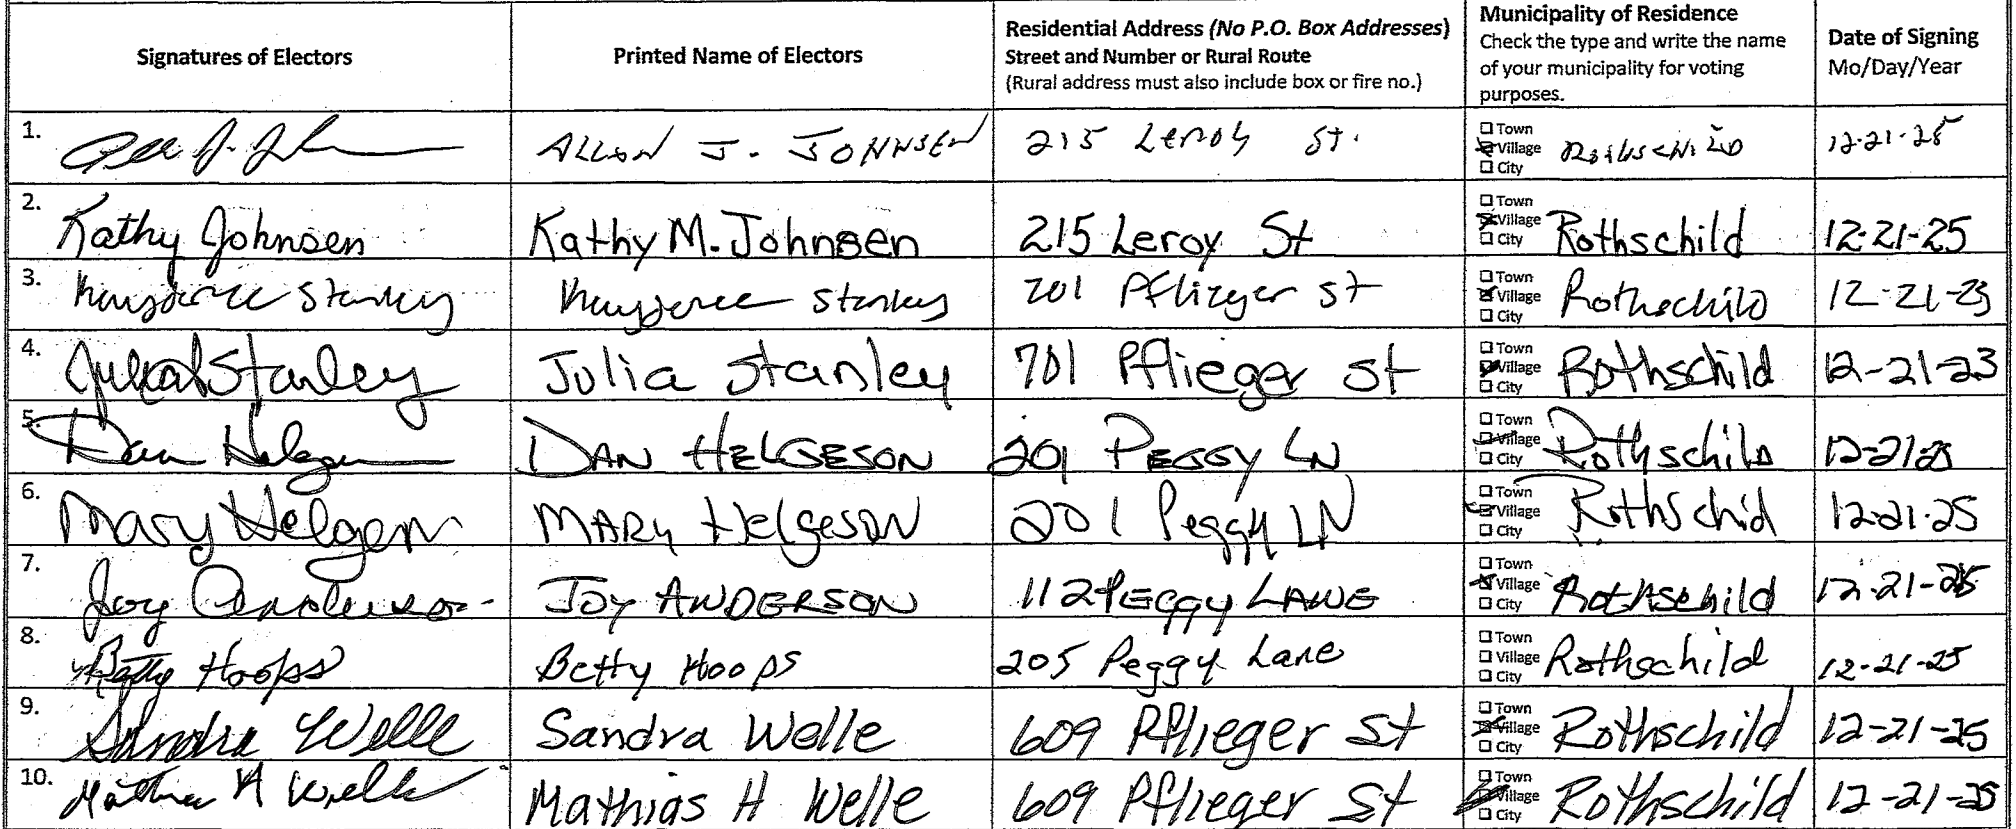 Signatures of Electors
Printed Name of Electors
Residential Address (No P.O. Box Addresses)
Street and Number or Rural Route
(Rural address must also include box or fire no.)
Municipality of Residence
Check the type and write the name
of your municipality for voting
purposes.
Date of Signing
Mo/Day/Year
1. J. ALLEN J. JOHNSEN 215 Leroy St. Town Village City 12-21-25
2. Kathy Johnsen Kathy M. Johnsen 215 Leroy St Town Village City Rothschild 12-21-25
3. Stanley Stanley 701 Pflieger st Town Village City Rothschild 12-21-25
4. Julia Stanley Julia Stanley 701 Pflieger st Town Village City Rothschild 12-21-23
5. Dan Helgeson DAN HELGESON 201 PEGGY LN Town Village City Rothschild 12-21-25
6. Mary Helgeson MARY HelgesoN 201 Peggy LN Town Village City Rothschid 12-21-25
7. Joy Anderson JOY ANDERSON 112 PEGGY LANE Town Village City Rothschild 12-21-25
8. Betty Hoops Betty Hoops 205 Peggy Lane Town Village City Rothschild 12-21-25
9. Sandra Welle Sandra Welle 609 Pflieger St Town Village City Rothschild 12-21-25
10. Mathias H Welle Mathias H Welle 609 Pflieger St Town Village City Rothschild 12-21-25